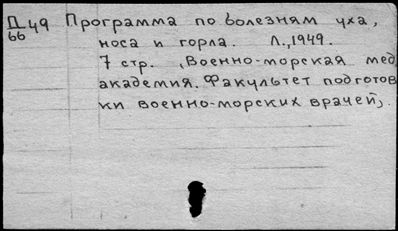 Д49 Программа по болезням уха,
66 носа и горла. Л., 1949.
7 стр. (Военно-морская мед.
академия. Факультет подготов
ки военно-морских врачей).